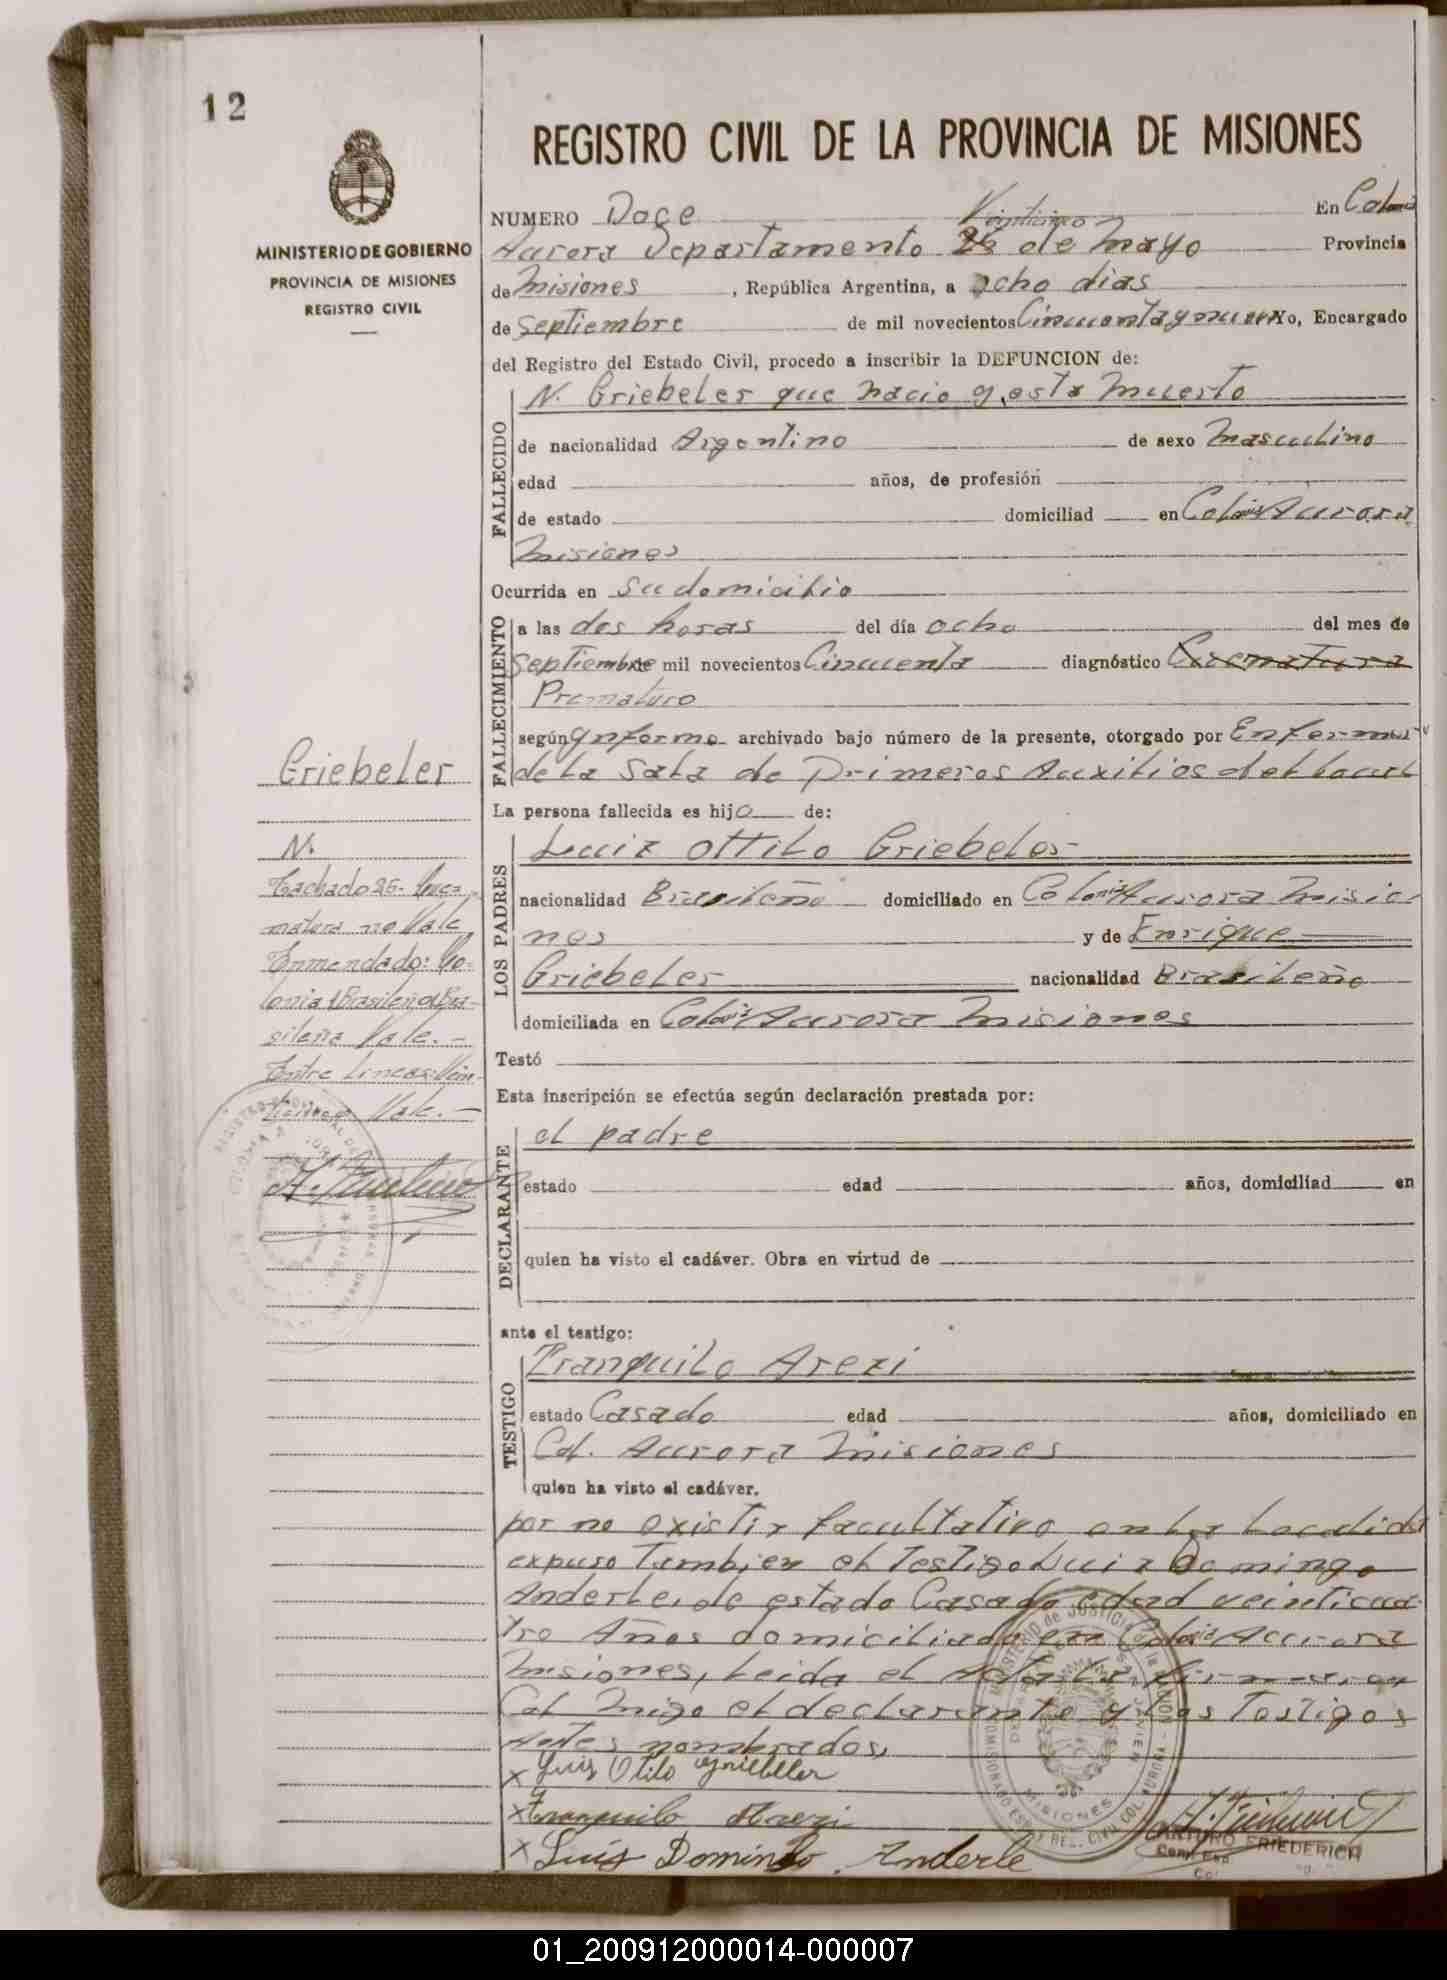 12
MINISTERIO DE GOBIERNO
PROVINCIA DE MISIONES
REGISTRO CIVIL
REGISTRO CIVIL DE LA PROVINCIA DE MISIONES
NUMERO Doce Veinticinco En Colonia
Aurora Departamento 25 de Mayo Provincia
de Misiones , República Argentina, a ocho dias
de Septiembre de mil novecientos Cincuenta y nueve Yo, Encargado
del Registro del Estado Civil, procedo a inscribir la DEFUNCION de:
FALLECIDO
N. Griebeler que nacio y esta muerto
de nacionalidad Argentino de sexo Masculino
edad años, de profesión
de estado domiciliad en Colonia Aurora
Misiones
FALLECIMIENTO
Ocurrida en su domicilio
a las dos horas del día ocho del mes de
Septiembre de mil novecientos Cincuenta diagnóstico
Prematuro
según informe archivado bajo número de la presente, otorgado por
de la Sala de Primeros Auxilios del Local
La persona fallecida es hijo de:
LOS PADRES
Luiz Ottilo Griebeler
nacionalidad Brasileño domiciliado en Colonia Aurora Misio-
nes y de Enrique
Griebeler nacionalidad Brasileño
domiciliada en Colonia Aurora Misiones
Testó
Esta inscripción se efectúa según declaración prestada por:
DECLARANTE
el padre
estado edad años, domiciliad en
quien ha visto el cadáver. Obra en virtud de
ante el testigo:
TESTIGO
Tranquilo Arezi
estado Casado edad años, domiciliado en
Col. Aurora Misiones
quien ha visto el cadáver.
por no existir facultativo en la Localidad
expuso Tambien el Testigo Luiz Domingo
Anderle, de estado Casado edad veinticua-
tro Años domiciliado en Colonia Aurora
Misiones, Leida el Acta La firmaron
Con migo el declarante y los Testigos
Antes nombrados,
x Luis Otilo Griebeler
x Tranquilo Arezi
x Luis Domingo Anderle
ARTURO FRIEDERICH
Griebeler
N.
Tachado 25-
matura no Vale
Enmendado: Co-
lonia Brasileño Bra-
sileña Vale. -
Entre Lineas: Vein-
ticinco Vale. -
01_200912000014-000007